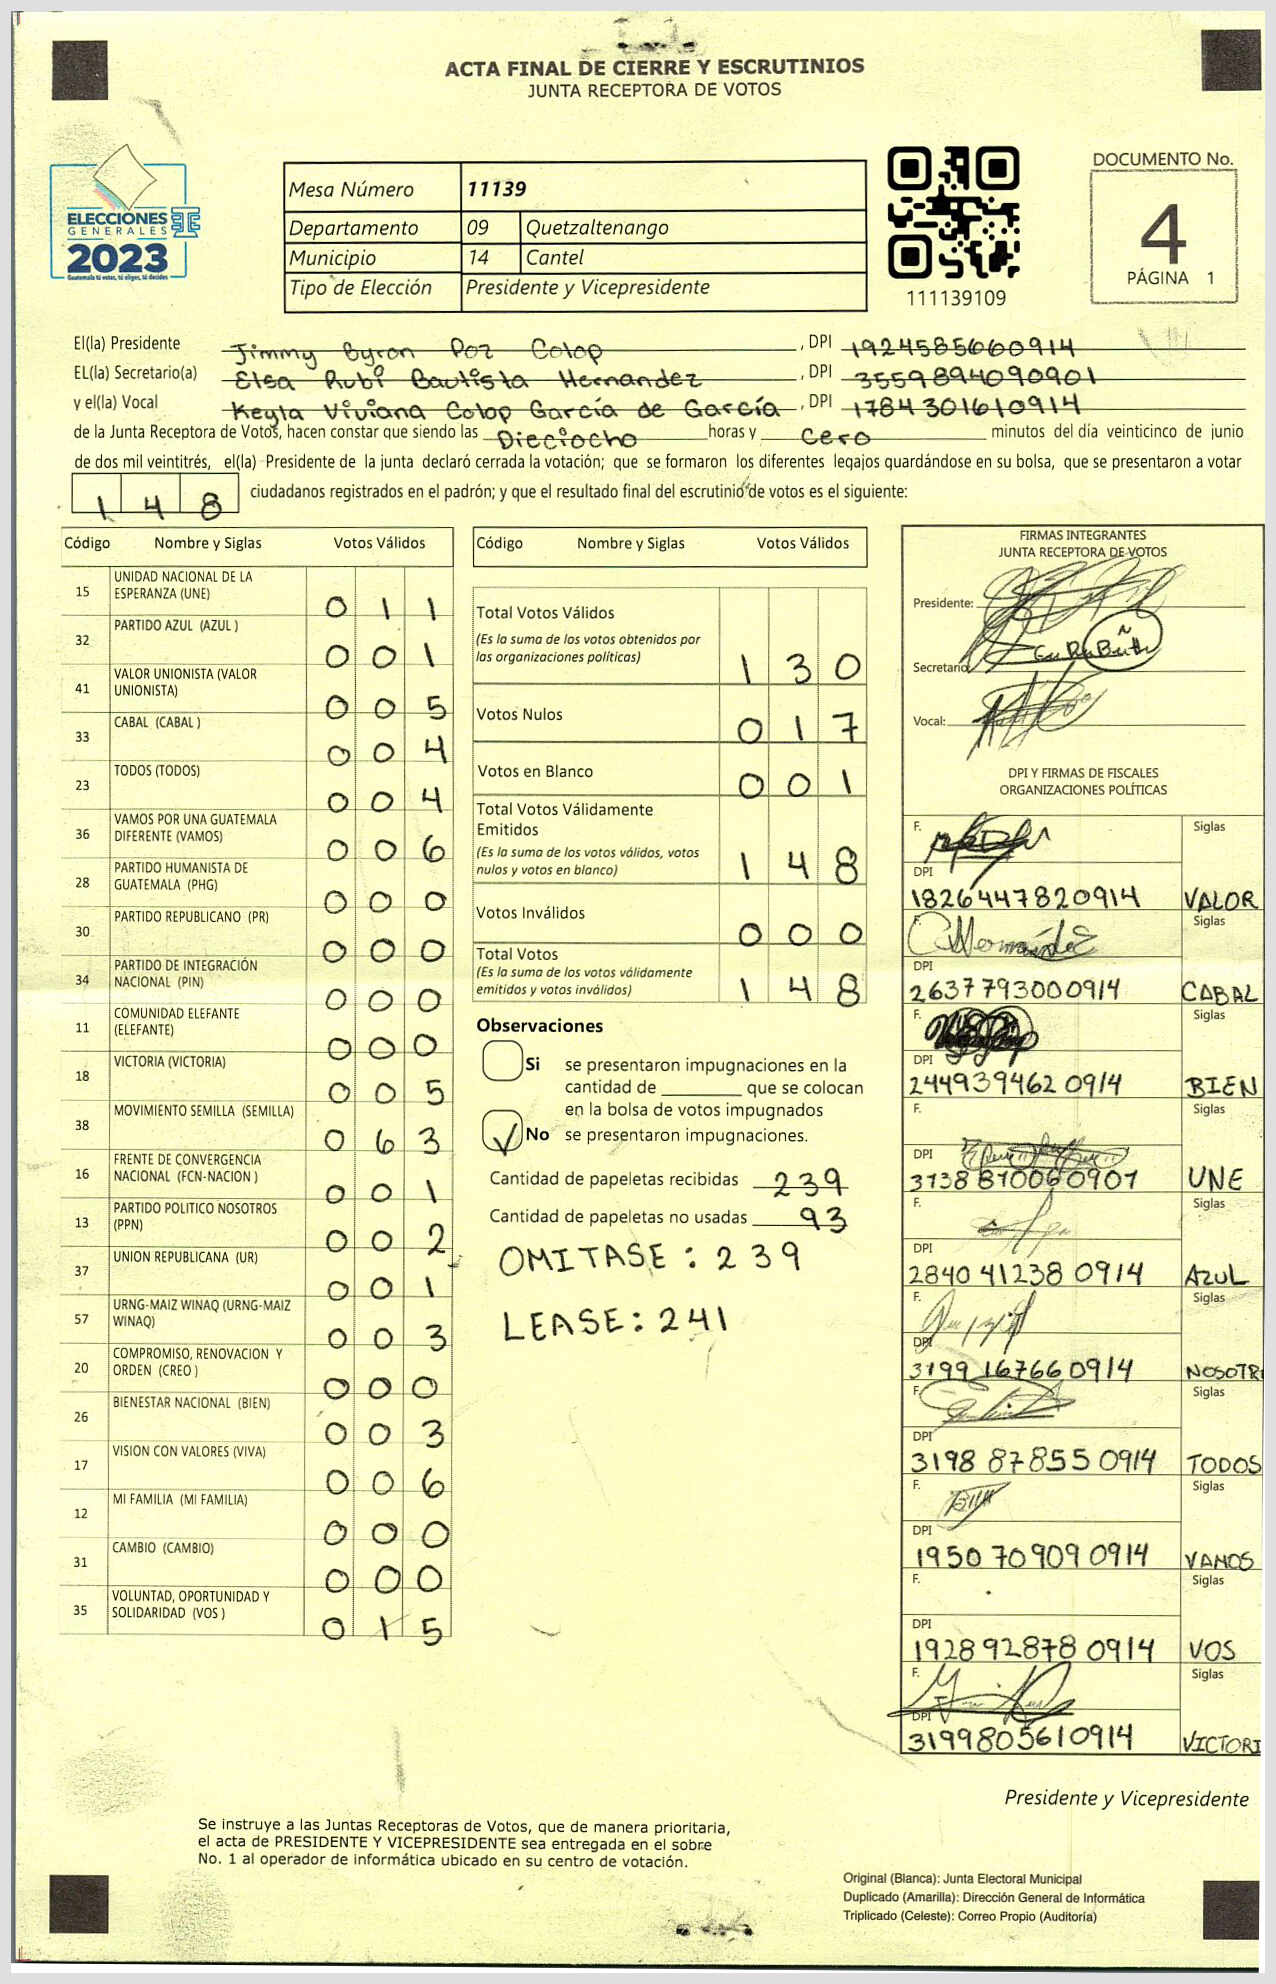 ACTA FINAL DE CIERRE Y ESCRUTINIOS
JUNTA RECEPTORA DE VOTOS
ELECCIONES
GENERALES
2023
Guatemala tú votas, tú eliges, tú decides
Mesa Número 11139
Departamento 09 Quetzaltenango
Municipio 14 Cantel
Tipo de Elección Presidente y Vicepresidente
111139109
DOCUMENTO No.
4
PÁGINA 1
El(la) Presidente Jimmy Byron Poz Colop, DPI 1924585660914
EL(la) Secretario(a) Elsa Rubi Bautista Hernandez, DPI 3559894090901
y el(la) Vocal Keyla Viviana Colop García de García, DPI 1784301610914
de la Junta Receptora de Votos, hacen constar que siendo las Dieciocho horas y Cero minutos del día veinticinco de junio
de dos mil veintitrés, el(la) Presidente de la junta declaró cerrada la votación; que se formaron los diferentes legajos guardándose en su bolsa, que se presentaron a votar
148 ciudadanos registrados en el padrón; y que el resultado final del escrutinio de votos es el siguiente:
Código Nombre y Siglas Votos Válidos
15 UNIDAD NACIONAL DE LA ESPERANZA (UNE) 011
32 PARTIDO AZUL (AZUL ) 001
41 VALOR UNIONISTA (VALOR UNIONISTA) 005
33 CABAL (CABAL ) 004
23 TODOS (TODOS) 004
36 VAMOS POR UNA GUATEMALA DIFERENTE (VAMOS) 006
28 PARTIDO HUMANISTA DE GUATEMALA (PHG) 000
30 PARTIDO REPUBLICANO (PR) 000
34 PARTIDO DE INTEGRACIÓN NACIONAL (PIN) 000
11 COMUNIDAD ELEFANTE (ELEFANTE) 000
18 VICTORIA (VICTORIA) 005
38 MOVIMIENTO SEMILLA (SEMILLA) 063
16 FRENTE DE CONVERGENCIA NACIONAL (FCN-NACION ) 001
13 PARTIDO POLITICO NOSOTROS (PPN) 002
37 UNION REPUBLICANA (UR) 001
57 URNG-MAIZ WINAQ (URNG-MAIZ WINAQ) 003
20 COMPROMISO, RENOVACION Y ORDEN (CREO ) 000
26 BIENESTAR NACIONAL (BIEN) 003
17 VISION CON VALORES (VIVA) 006
12 MI FAMILIA (MI FAMILIA) 000
31 CAMBIO (CAMBIO) 000
35 VOLUNTAD, OPORTUNIDAD Y SOLIDARIDAD (VOS ) 015
Código Nombre y Siglas Votos Válidos
Total Votos Válidos
(Es la suma de los votos obtenidos por
las organizaciones políticas) 130
Votos Nulos 017
Votos en Blanco 001
Total Votos Válidamente
Emitidos
(Es la suma de los votos válidos, votos
nulos y votos en blanco) 148
Votos Inválidos 000
Total Votos
(Es la suma de los votos válidamente
emitidos y votos inválidos) 148
Observaciones
Si se presentaron impugnaciones en la
cantidad de ________ que se colocan
en la bolsa de votos impugnados
No se presentaron impugnaciones.
Cantidad de papeletas recibidas 239
Cantidad de papeletas no usadas 93
OMITASE: 239
LEASE: 241
FIRMAS INTEGRANTES
JUNTA RECEPTORA DE VOTOS
Presidente:
Secretario
Vocal:
DPI Y FIRMAS DE FISCALES
ORGANIZACIONES POLÍTICAS
F. Siglas
DPI
1826447820914 VALOR
F. Siglas
DPI
2637793000914 CABAL
F. Siglas
DPI
2449394620914 BIEN
F. Siglas
DPI
3138810060901 UNE
F. Siglas
DPI
2840412380914 AZUL
F. Siglas
DPI
3199167660914 NOSOTR
F. Siglas
DPI
3198878550914 TODOS
F. Siglas
DPI
1950709090914 VAMOS
F. Siglas
DPI
1928928780914 VOS
F. Siglas
DPI
3199805610914 VICTORI
Presidente y Vicepresidente
Se instruye a las Juntas Receptoras de Votos, que de manera prioritaria,
el acta de PRESIDENTE Y VICEPRESIDENTE sea entregada en el sobre
No. 1 al operador de informática ubicado en su centro de votación.
Original (Blanca): Junta Electoral Municipal
Duplicado (Amarilla): Dirección General de Informática
Triplicado (Celeste): Correo Propio (Auditoría)